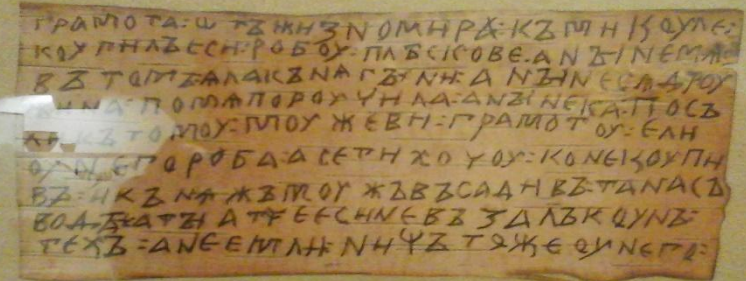 грамота : ѡтъ жизномира : къ микоуле :
коупилъ еси : робоу : плъскове : а нꙑне мѧ
въ томъ : ѧла кънѧгꙑни : а нꙑне сѧ дроу
жина : по мѧ пороучила : а нꙑне ка : посъ
ли къ томоу : моужеви : грамотоу : ели
оу него роба : а се ти хочоу : коне коупи
въ : и кънѧжъ моужъ въсадивъ : та на съ
водꙑ : а тꙑ атче еси не възалъ коунъ :
техъ : а не емли : ничъто же оу него :